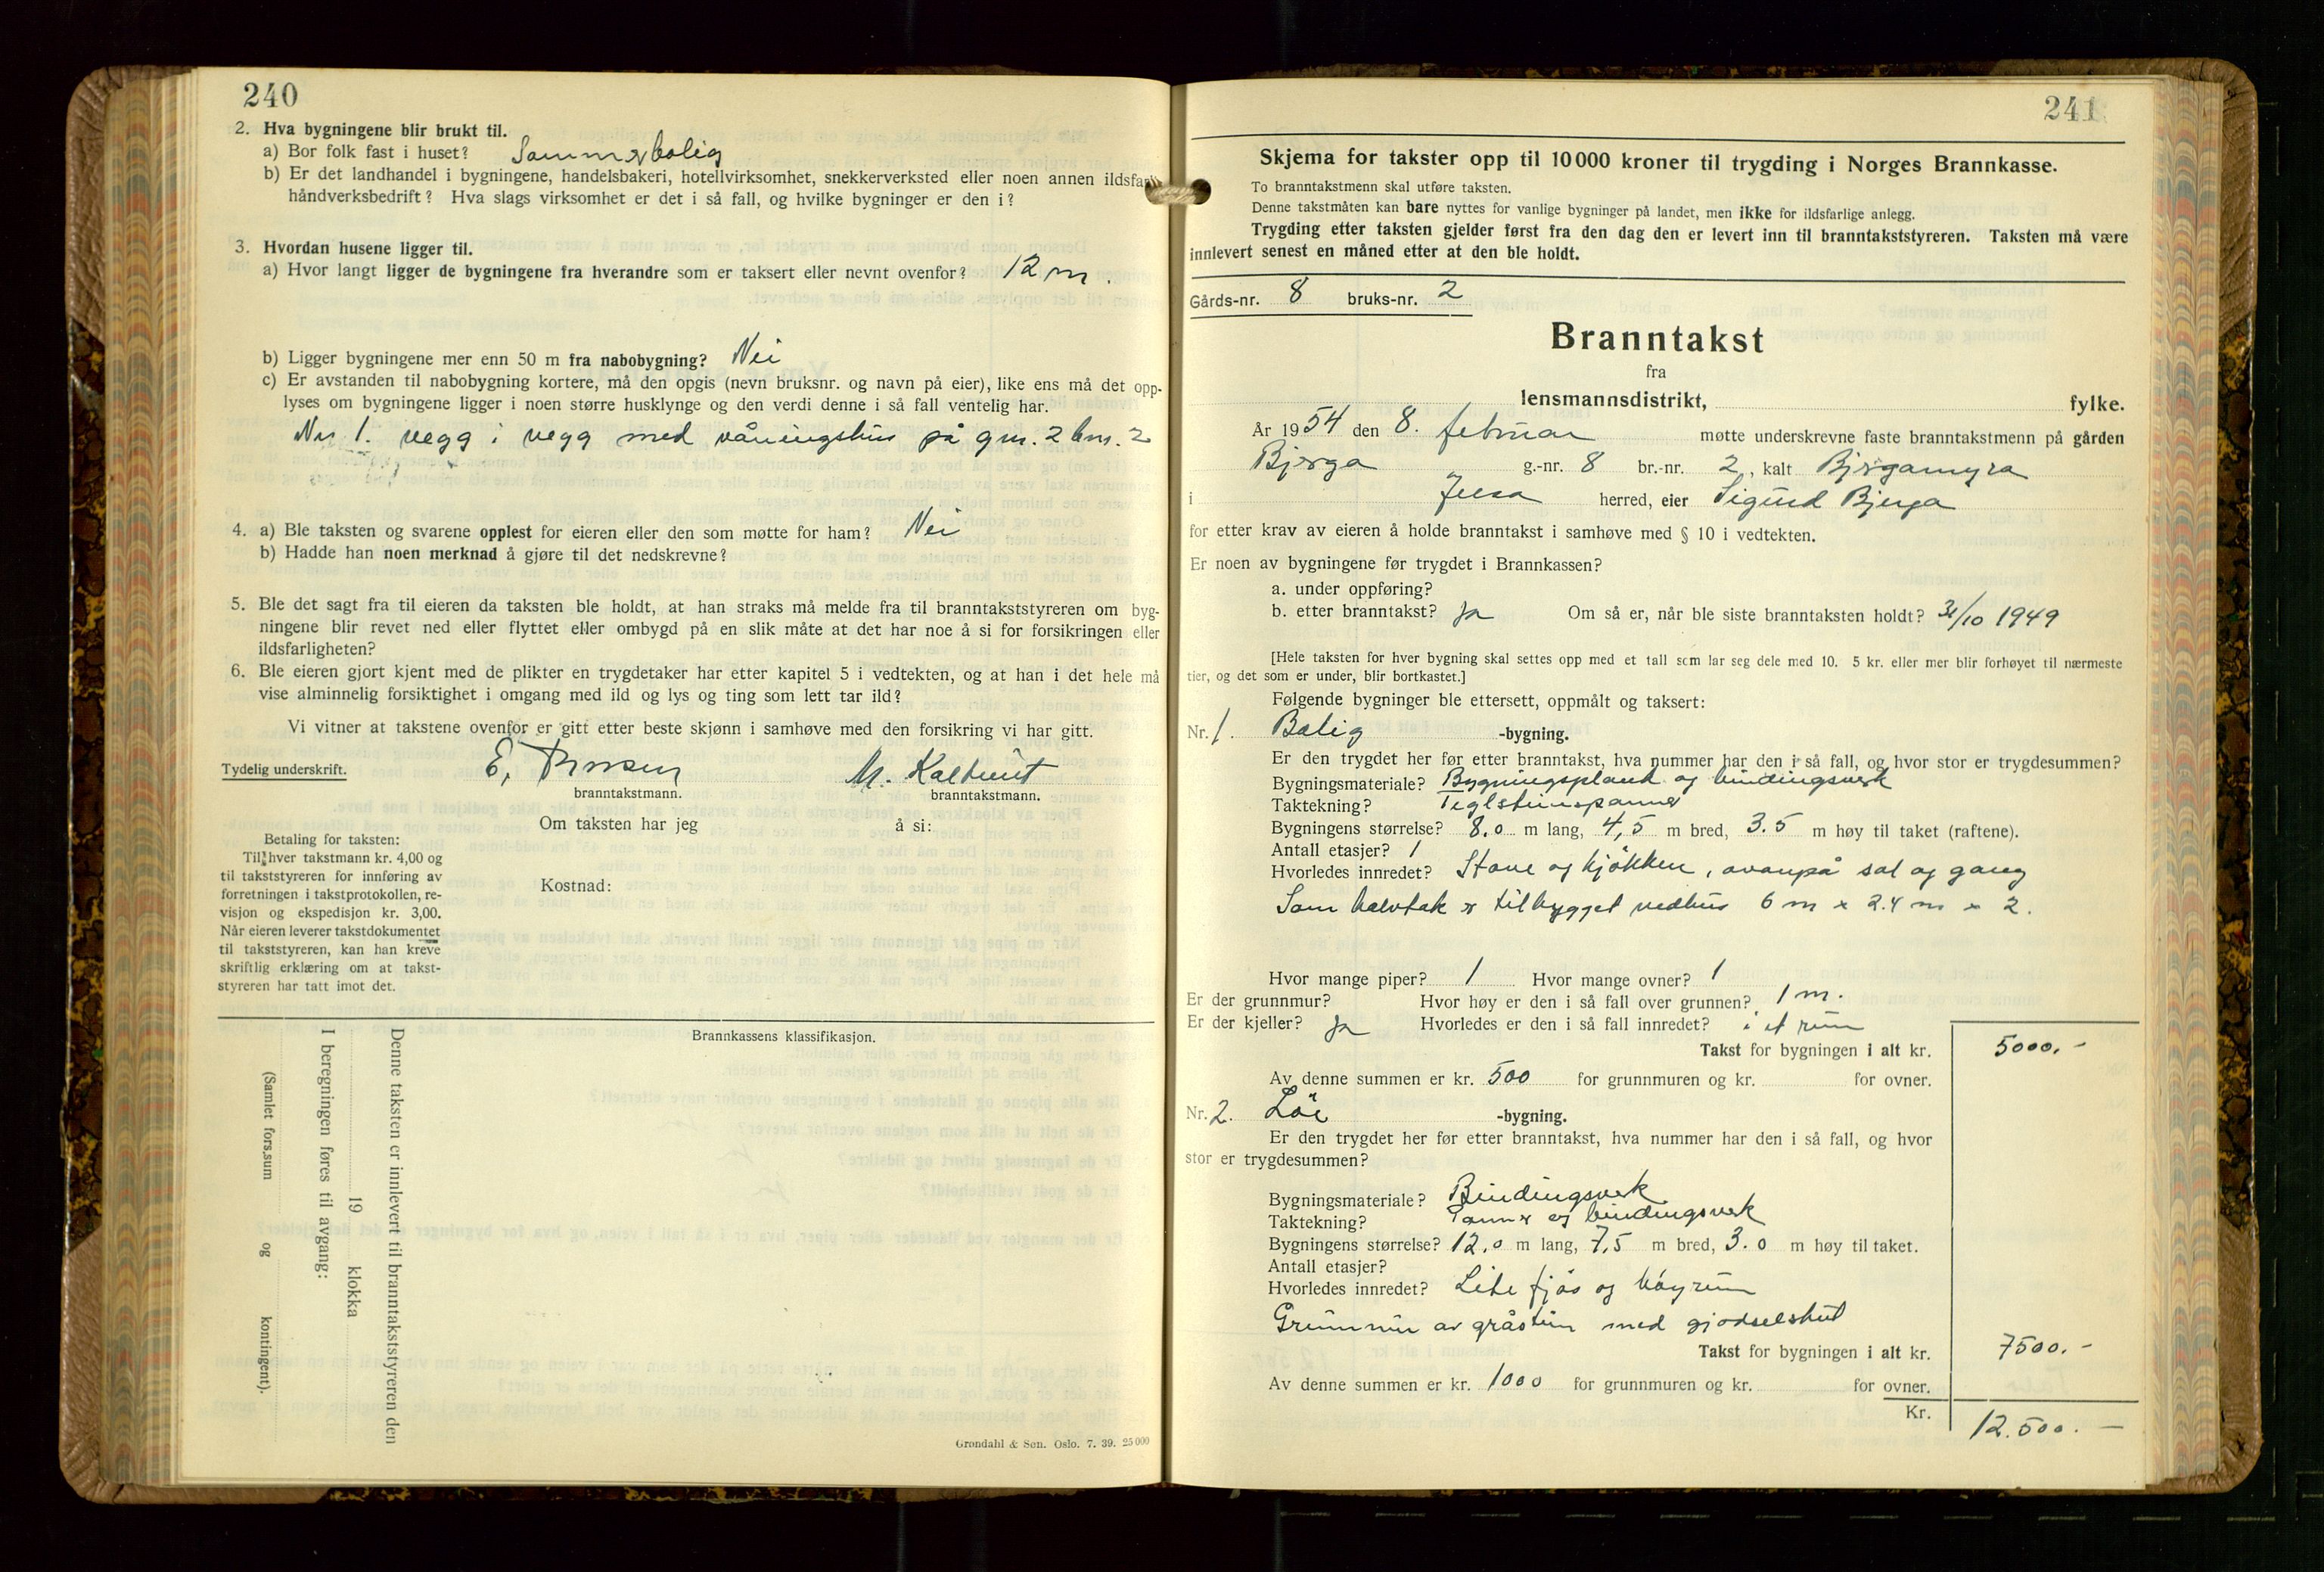 240
2. Hva bygningene blir brukt til.
a) Bor folk fast i huset? Sommerbolig
b) Er det landhandel i bygningene, handelsbakeri, hotellvirksomhet, snekkerverksted eller noen annen ildsfarl
håndverksbedrift? Hva slags virksomhet er det i så fall, og hvilke bygninger er den i?
3. Hvordan husene ligger til.
a) Hvor langt ligger de bygningene fra hverandre som er taksert eller nevnt ovenfor? 12 m.
b) Ligger bygningene mer enn 50 m fra nabobygning? Nei
c) Er avstanden til nabobygning kortere, må den opgis (nevn bruksnr. og navn på eier), like ens må det opp-
lyses om bygningene ligger i noen større husklynge og den verdi denne i så fall ventelig har.
Nr 1. vegg i vegg med våningshus på gnr. 2 bnr. 2
4. a) Ble taksten og svarene opplest for eieren eller den som møtte for ham? Nei
b) Hadde han noen merknad å gjøre til det nedskrevne?
5. Ble det sagt fra til eieren da taksten ble holdt, at han straks må melde fra til branntakststyreren om byg-
ningene blir revet ned eller flyttet eller ombygd på en slik måte at det har noe å si for forsikringen eller
ildsfarligheten?
6. Ble eieren gjort kjent med de plikter en trygdetaker har etter kapitel 5 i vedtekten, og at han i det hele må
vise alminnelig forsiktighet i omgang med ild og lys og ting som lett tar ild?
Vi vitner at takstene ovenfor er gitt etter beste skjønn i samhøve med den forsikring vi har gitt.
Tydelig underskrift. E. M. Kaltveit
branntakstmann. branntakstmann.
Om taksten har jeg å si:
Betaling for taksten:
Til hver takstmann kr. 4,00 og
til takststyreren for innføring av
forretningen i takstprotokollen, re-
visjon og ekspedisjon kr. 3,00.
Når eieren leverer takstdokumentet
til takststyreren, kan han kreve
skriftlig erklæring om at takst-
styreren har tatt imot det.
Kostnad:
Brannkassens klassifikasjon.
Denne taksten er innlevert til branntakststyreren den
19 klokka
I beregningen føres til avgang:
(Samlet fors.sum og kontingent).
Grøndahl & Søn. Oslo. 7. 39. 25 000
241
Skjema for takster opp til 10 000 kroner til trygding i Norges Brannkasse.
To branntakstmenn skal utføre taksten.
Denne takstmåten kan bare nyttes for vanlige bygninger på landet, men ikke for ildsfarlige anlegg.
Trygding etter taksten gjelder først fra den dag den er levert inn til branntakststyreren. Taksten må være
innlevert senest en måned etter at den ble holdt.
Gårds-nr. 8 bruks-nr. 2
Branntakst
fra
lensmannsdistrikt, fylke.
År 1954 den 8. februar møtte underskrevne faste branntakstmenn på gården
Bjerga g.-nr. 8 br.-nr. 2, kalt Bjergamyra
i Jelsa herred, eier Sigurd Bjerga
for etter krav av eieren å holde branntakst i samhøve med § 10 i vedtekten.
Er noen av bygningene før trygdet i Brannkassen?
a. under oppføring?
b. etter branntakst? ja Om så er, når ble siste branntaksten holdt? 31/10 1949
[Hele taksten for hver bygning skal settes opp med et tall som lar seg dele med 10. 5 kr. eller mer blir forhøyet til nærmeste
tier, og det som er under, blir bortkastet.]
Følgende bygninger ble ettersett, oppmålt og taksert:
Nr. 1. Bolig -bygning.
Er den trygdet her før etter branntakst, hva nummer har den i så fall, og hvor stor er trygdesummen?
Bygningsmateriale? Bygningsplank og bindingsverk
Taktekning? Teglsteinspanner
Bygningens størrelse? 8.0 m lang, 4,5 m bred, 3.5 m høy til taket (raftene).
Antall etasjer? 1
Hvorledes innredet? Stove og kjøkken, ovanpå sal og gang
Som halvtak er tilbygget vedhus 6 m x 2.4 m x 2.
Hvor mange piper? 1 Hvor mange ovner? 1
Er der grunnmur? Hvor høy er den i så fall over grunnen? 1 m.
Er der kjeller? ja Hvorledes er den i så fall innredet? i et rum
Takst for bygningen i alt kr. 5000.-
Av denne summen er kr. 500 for grunnmuren og kr. for ovner.
Nr. 2. Löe -bygning.
Er den trygdet her før etter branntakst, hva nummer har den i så fall, og hvor
stor er trygdesummen?
Bygningsmateriale? Bindingsverk
Taktekning? Panner og bindingsverk
Bygningens størrelse? 12.0 m lang, 7,5 m bred, 3.0 m høy til taket.
Antall etasjer?
Hvorledes innredet? Lite fjøs og høyrum
Grunnmur av gråstein med gjødselshus
Takst for bygningen i alt kr. 7500.-
Av denne summen er kr. 1000 for grunnmuren og kr. for ovner.
Kr. 12.500.-